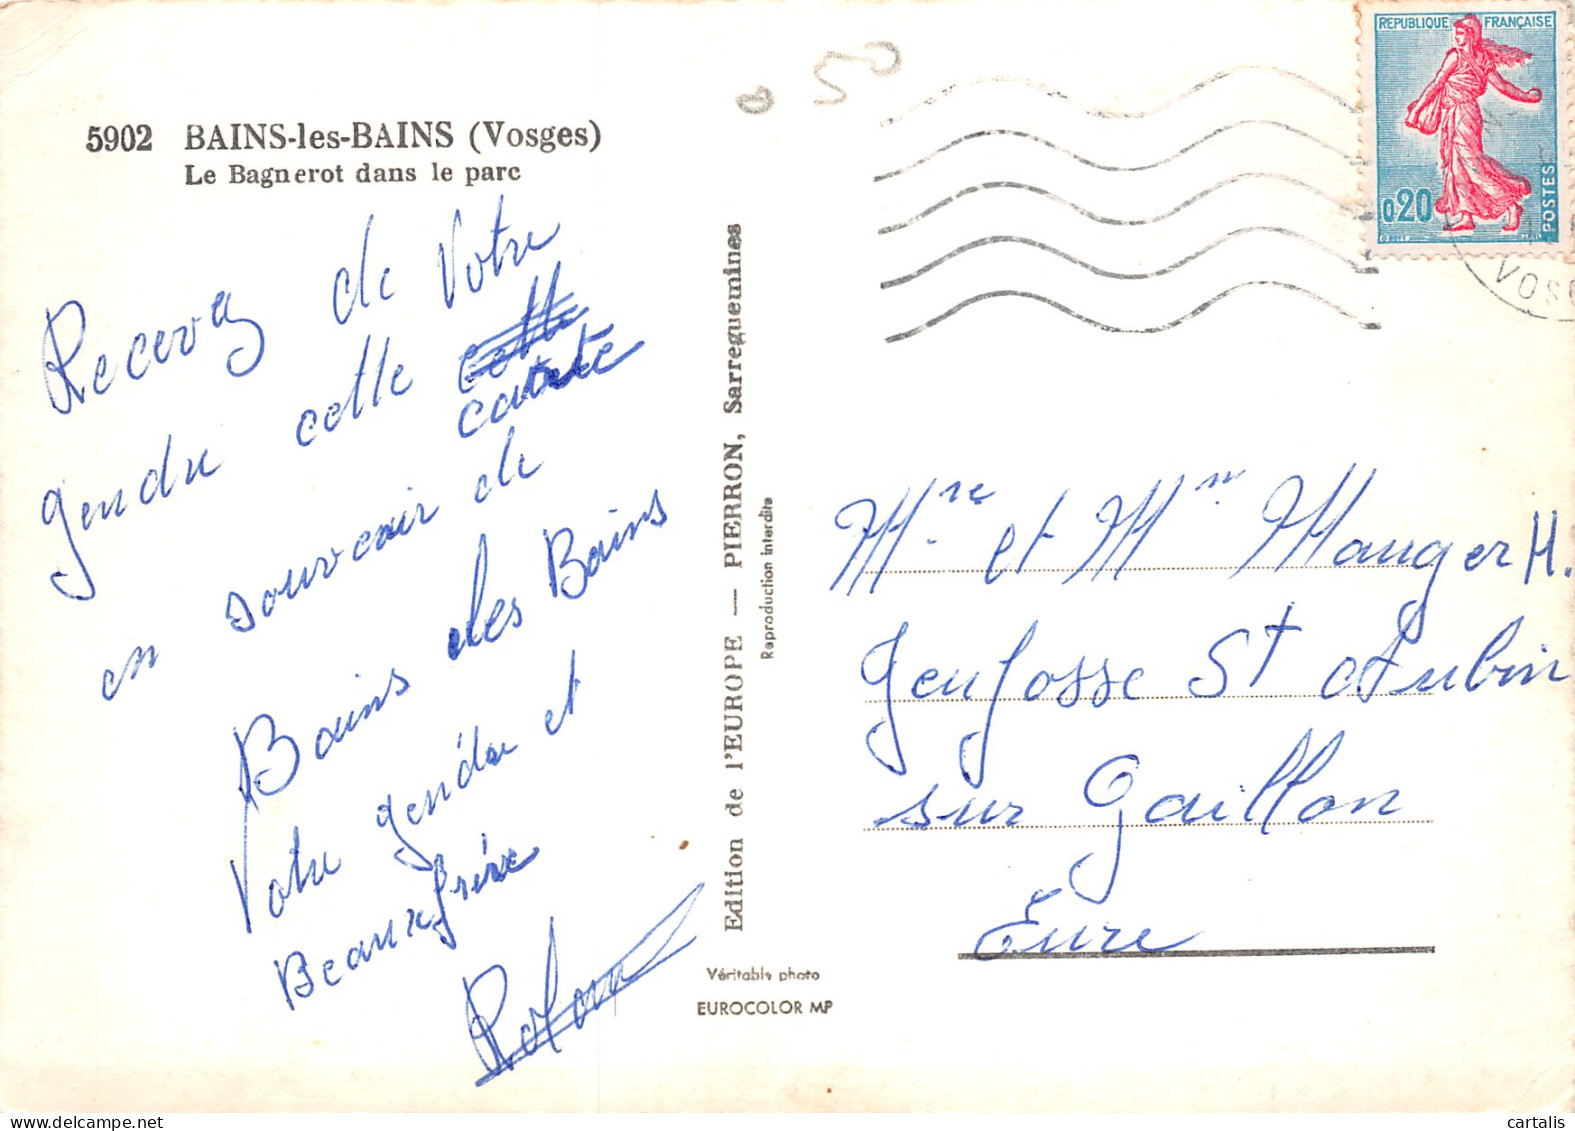 5902 BAINS-les-BAINS (Vosges)
Le Bagnerot dans le parc
Recevez de Votre
gendre cette cette
carte
en souvenir de
Bains les Bains
Votre gendre et
Beaux frère
Roland
Edition de l'EUROPE — PIERRON, Sarreguemines
Reproduction interdite
Véritable photo
EUROCOLOR MP
50
REPUBLIQUE FRANÇAISE
0,20
POSTES
VOSG
Mre et Mm Mauger H.
Jeufosse St Aubin
sur Gaillon
Eure
cartalis
delcampe.net